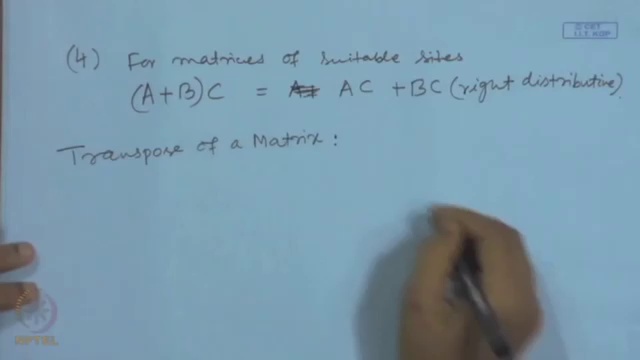 © CET
I.I.T. KGP
(4) For matrices of suitable sites
(A+B)C = AC + BC (right distributive).
Transpose of a Matrix:
NPTEL